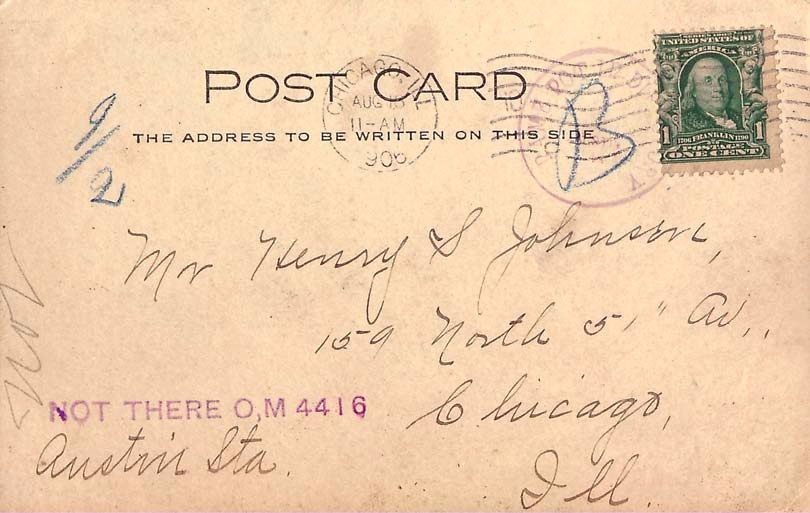 POST CARD
THE ADDRESS TO BE WRITTEN ON THIS SIDE
CHICAGO, ILL.
AUG 18
11-AM
1906
SERIES 1902
UNITED STATES OF
AMERICA
1 FRANKLIN 1
POSTAGE
ONE CENT
B
9/2
Mr Henry S Johnson,
159 North 51" Av.,
Chicago,
Ill.
Not
NOT THERE O,M 4416
Austin Sta.